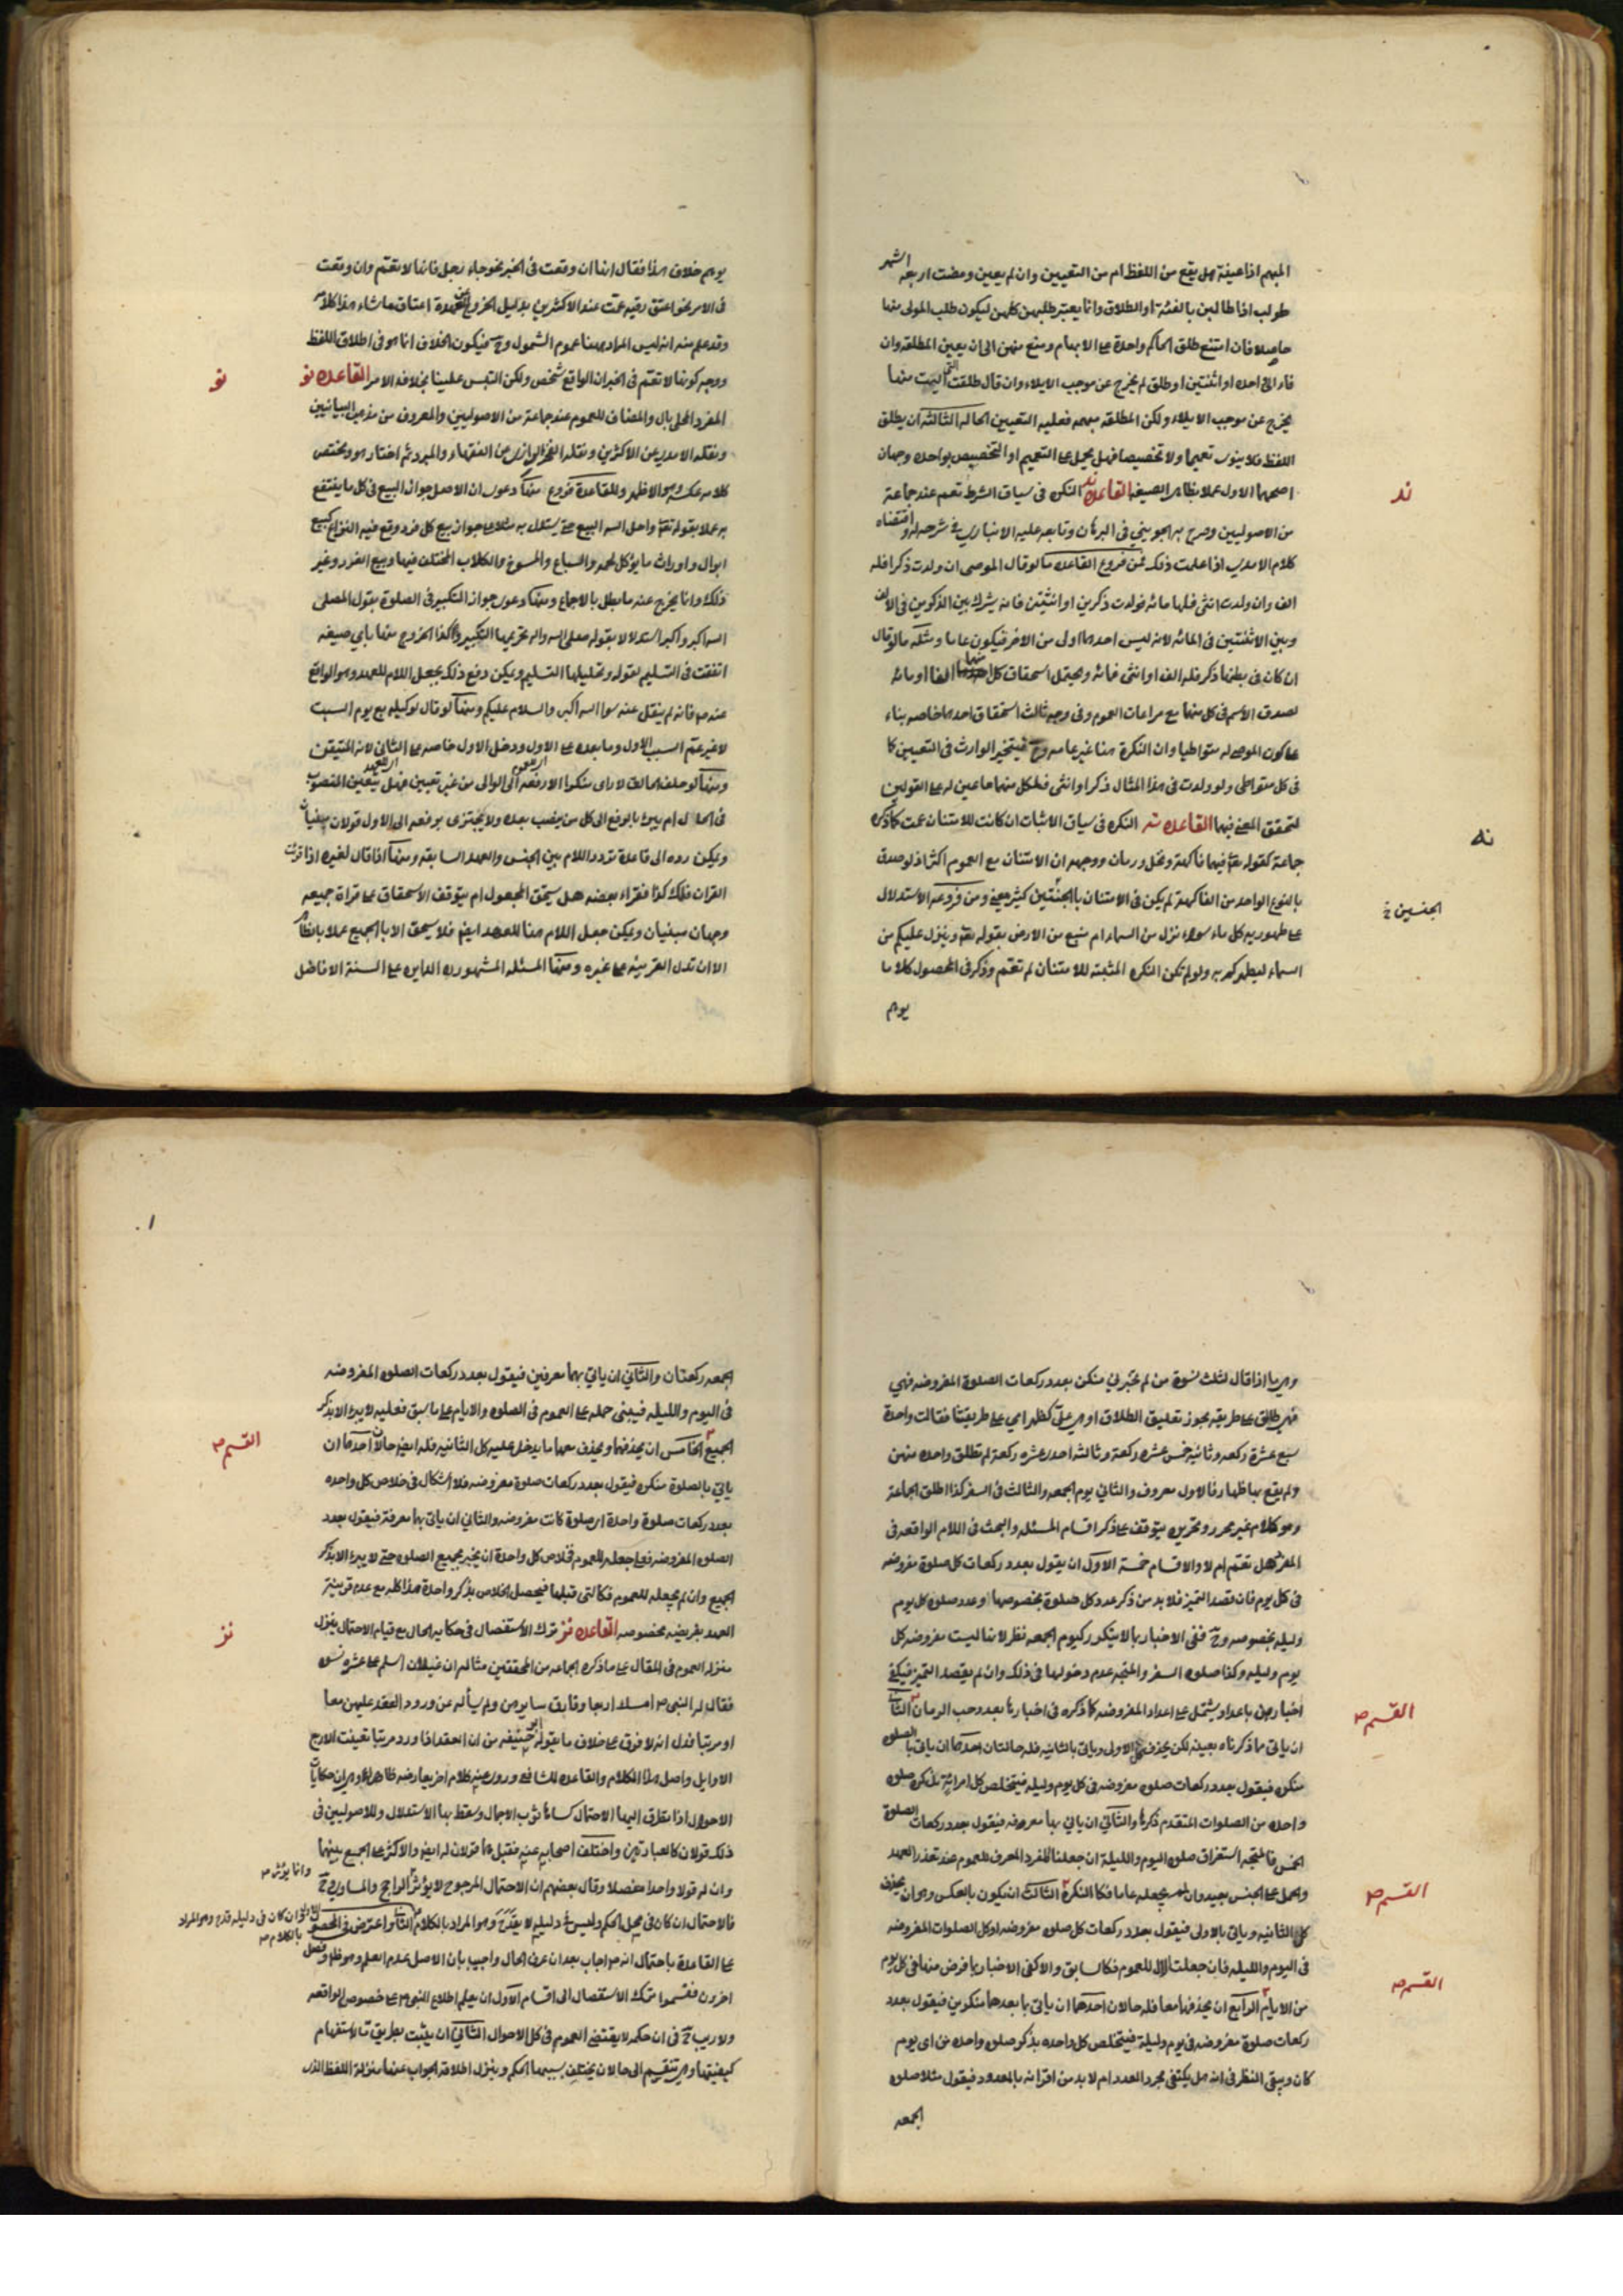 المبهم اذا عينه هل يقع من اللفظ ام من التعيين وان لم يعين ومضت اربعة اشهر
طولب اذا طالبن بالفئة او الطلاق وانما يعتبر طلبهن كلهن ليكون طلب المولى منها
حاصلا فان امتنع طلق الحاكم واحدة على الابهام ومنع منهن الى ان يعين المطلقه وان
فاء الى احده او اثنتين او طلق لم يخرج عن موجب الايلاء وان قال طلقت التى آليت منها
يخرج عن موجب الايلاء ولكن المطلقه مبهمه فعليه التعيين الحاله الثالثة ان يطلق
اللفظ فلا ينوى تعميما ولا تخصيصا فهل يحمل على التعميم او التخصيص بواحده وجهان
اصحهما الاول عملا بظاهر الصيغه القاعده ند النكره فى سياق الشرط تعم عند جماعة
ند
من الاصوليين وصرح به الجوينى فى البرهان وتابعه عليه الانبارى فى شرحه له واقتضاه
كلام الامدى اذا علمت ذلك فمن فروع القاعده ما لو قال الموصى ان ولدت ذكرا فله
الف وان ولدت انثى فلها مائه فولدت ذكرين او انثيين فانه يشرك بين الذكرين فى الالف
وبين الانثيين فى المائه لانه ليس احدهما اولى من الاخر فيكون عاما ومثله ما لو قال
ان كان فى بطنها ذكر فله الف او انثى فمائه ويحتمل استحقاق كل منهما الفا او مائه
لصدق الاسم فى كل منهما مع مراعات العموم وفى وجه ثالث استحقاق احدهما خاصه بناء
على كون الموصى له متواطيا وان النكرة هنا غير عامه وح فيتخير الوارث فى التعيين كما
فى كل متواطى ولو ولدت فى هذا المثال ذكرا وانثى فلكل منهما ما عين له على القولين
لتحقق المعنى فيهما القاعده نه النكره فى سياق الاثبات ان كانت للامتنان عمت كما ذكره
نه
جماعة كقوله تعا فيهما فاكهة ونخل ورمان ووجهه ان الامتنان مع العموم اكثر اذ لو صدق
بالنوع الواحد من الفاكهة لم يكن فى الامتنان بالجنتين كثير معنى ومن فروعه الاستدلال
الجنسين خ
على طهورية كل ماء سواء نزل من السماء ام نبع من الارض بقوله تعا وينزل عليكم من
السماء ليطهركم به ولو لم تكن النكره المثبته للامتنان لم تعم وذكر فى المحصول كلاما
يوهم
يوهم خلاف هذا فقال انها ان وقعت فى الخبر نحو جاء رجل فانها لا تعم وان وقعت
فى الامر نحو اعتق رقبه عمت عند الاكثرين بدليل الخروج عن العهدة اعتاق ما شاء هذا كلامه
وقد علم منه انه ليس المراد هنا عموم الشمول وح فيكون الخلاف انما هو فى اطلاق اللفظ
ووجه كونها لا تعم فى الخبر ان الواقع شخص ولكن التبس علينا بخلافه الامر القاعده نو
نو
المفرد المحلى بال والمضاف للعموم عند جماعة من الاصوليين والمعروف من مذهب البيانيين
ونقله الامدى عن الاكثرين ونقله الفخر الرازى عن الفقهاء والمبرد ثم اختار هو ومختصر
كلامه عكسه وهو الاظهر وللقاعدة فروع منها دعوى ان الاصل جواز البيع فى كل ما ينتفع
به عملا بقوله تعا واحل الله البيع حتى يستدل به مثلا على جواز بيع كل فرد وقع فيه النزاع كبيع
ابوال وارواث ما يؤكل لحمه والسباع والمسوخ والكلاب المختلف فيها وبيع الغرر وغير
ذلك وانما يخرج عنه ما بطل بالاجماع ومنها دعوى جواز التكبير فى الصلوة بقول المصلى
الله اكبر واكبر استدلالا بقوله صلى الله واله تحريمها التكبير وكذا الخروج منها باى صيغه
اتفقت فى التسليم لقوله وتحليلها التسليم ويمكن دفع ذلك بجعل اللام للعهد وهو الواقع
عنه ص فانه لم ينقل عنه سوا الله اكبر والسلام عليكم ومنها لو قال لوكيله بع يوم السبت
لا غير عم السبت الاول وما بعده على الاول ودخل الاول خاصه على الثانى لانه المتيقن
ومنها لو حلف الحالف لا راى منكرا الا رفعه الى الوالى من غير تعيين فهل يتعين المنصوب
فى الحال ام يبرء بالرفع الى كل من ينصب بعده ولا يجتزى برفعه الى الاول قولان مبنيان
ويمكن رده الى قاعدة تردد اللام بين الجنس والعهد السابقه ومنها اذا قال لغيره اذا قرئت
القران فلك كذا فقراء بعضه هل يستحق المجعول ام يتوقف الاستحقاق على قراة جميعه
وجهان مبنيان ويمكن جعل اللام هنا للعهد ايضا فلا يستحق الا بالجميع عملا بالظاهر
الا ان تدل القرينه على غيره ومنها المسئله المشهوره الدايره على السنة الافاضل
وهى ما اذا قال لثلث نسوة من لم تخبرنى منكن بعدد ركعات الصلوة المفروضه فهى
فهى طالق على طريقه يجوز تعليق الطلاق او هى على كظهر امى على طريقتنا فقالت واحدة
سبع عشرة ركعه وثانيه خمس عشره ركعة وثالثه احدى عشره ركعة لم تطلق واحده منهن
ولم يقع بها ظهار فالاول معروف والثانى يوم الجمعه والثالث فى السفر كذا اطلق الجماعة
وهو كلام غير محرر وتحريره يتوقف على ذكر اقسام المسئله والبحث فى اللام الواقعه فى
المفرد هل تعم ام لا والاقسام خمسة الاول ان يقول بعدد ركعات كل صلوة مفروضه
فى كل يوم فان قصد التميز فلا بد من ذكر عدد كل صلوة بخصوصها وعدد صلوه كل يوم
وليله بخصوصه وح ففى الاخبار بما لا يتكرر كيوم الجمعه نظر لانها ليست مفروضه كل
يوم وليله وكذا صلوه السفر والمتجه عدم دخولها فى ذلك وان لم يقصد التميز فيكفى
اخبارهن باعداد يشتمل على اعداد المفروضه كما ذكره فى اخبارها بعدد حب الرمان الثانى
القسم ص
ان ياتى ما ذكرناه بعينه لكن يحذف كل الاولى وياتى بالثانيه فله حالتان احدهما ان ياتى بالصلوه
منكره فيقول بعدد ركعات صلوه مفروضه فى كل يوم وليله فيتخلص كل امراة بذكر صلوه
واحده من الصلوات المتقدم ذكرها والثانى ان ياتى بها معرفه فيقول بعدد ركعات الصلوة
الخمس فالمتجه استغراق صلوه اليوم والليلة ان جعلنا المفرد المعرف للعموم عند تعذر العهد
والحمل على الجنس بعيد وان لم يجعله عاما فكالنكرة الثالث ان يكون بالعكس وهو ان يحذف
القسم ص
كل الثانيه وياتى بالاولى فيقول بعدد ركعات كل صلوه مفروضه او كل الصلوات المفروضه
فى اليوم والليله فان جعلت ال للعموم فكالسابق والا كفى الاخبار بما فرض منها فى كل يوم
من الايام الرابع ان يحذفهما معا فله حالان احدهما ان ياتى بما بعدهما منكرين فيقول بعدد
القسم ص
ركعات صلوة مفروضه فى يوم وليلة فيتخلص كل واحده بذكر صلوه واحده من اى يوم
كان ويبقى النظر فى انه هل يكتفى بمجرد العدد ام لا بد من اقترانه بالمعدود فيقول مثلا صلوه
الجمعه
الجمعه ركعتان والثانى ان ياتى بهما معرفين فيقول بعدد ركعات الصلوه المفروضه
فى اليوم والليله فيبنى حمله على العموم فى الصلوه والايام على ما سبق فعليه لا يبرء الا بذكر
الجميع الخامس ان يحذفها ويحذف معها ما يدخل عليه كل الثانيه فله ايضا حالان احدهما ان
القسم ص
ياتى بالصلوة منكره فيقول بعدد ركعات صلوة مفروضه فلا اشكال فى خلاص كل واحده
بعدد ركعات صلوة واحدة اى صلوة كانت مفروضه والثانى ان ياتى بها معرفة فيقول بعدد
الصلوه المفروضه فعلى جعله للعموم فخلاص كل واحدة ان يخبر بجميع الصلوه حتى لا يبرء الا بذكر
الجميع وان لم يجعله للعموم فكالتى قبلها فيحصل الخلاص بذكر واحدة هذا كله مع عدم قرينة
العهد بفريضه مخصوصه القاعده نز ترك الاستفصال فى حكايه الحال مع قيام الاحتمال ينزل
نز
منزله العموم فى المقال على ما ذكره الجماعه من المحققين مثاله ان غيلان اسلم على عشره نسوه
فقال له النبى ص امسك اربعا وفارق سايرهن ولم يسأله عن ورود العقد عليهن معا
او مرتبا فدل انه لا فرق على خلاف ما يقوله ابو حنيفه من ان العقد اذا ورد مرتبا تعينت الاربع
الاوايل واصل هذا الكلام والقاعده للشافعى وروى عنه كلام اخر يعارضه ظاهرا وهو ان حكايات
الاحوال اذا تطرق اليها الاحتمال كساها ثوب الاجمال وسقط بها الاستدلال وللاصوليين فى
ذلك قولان كالعبارتين واختلف اصحابه عنه فقيل هما قولان له ايضا والاكثر على الجمع بينهما
وان له قولا واحدا مفصلا وقال بعضهم ان الاحتمال المرجوح لا يؤثر الراجح والمساوى وح
وانما يؤثر ص
فالاحتمال ان كان فى محل الحكم وليس فى دليله لا يقدح وهو المراد بالكلام الثانى واعترض فى المحصول
الاول وان كان فى دليله قدح وهو المراد بالكلام ص
على القاعدة باحتمال انه ص اجاب بعد ان عرف الحال واجيب بان الاصل عدم العلم وهو ظاهر وفصل
اخرون فقسموا ترك الاستفصال الى اقسام الاول ان يعلم اطلاع النبى ص على خصوص الواقعه
ولا ريب ح فى ان حكمه لا يقتضى العموم فى كل الاحوال الثانى ان يثبت بطريق ما استفهام
كيفيتها وهى تنقسم الى حالات يختلف بسببها الحكم وينزل اطلاقه الجواب عنها منزلة اللفظ الذى